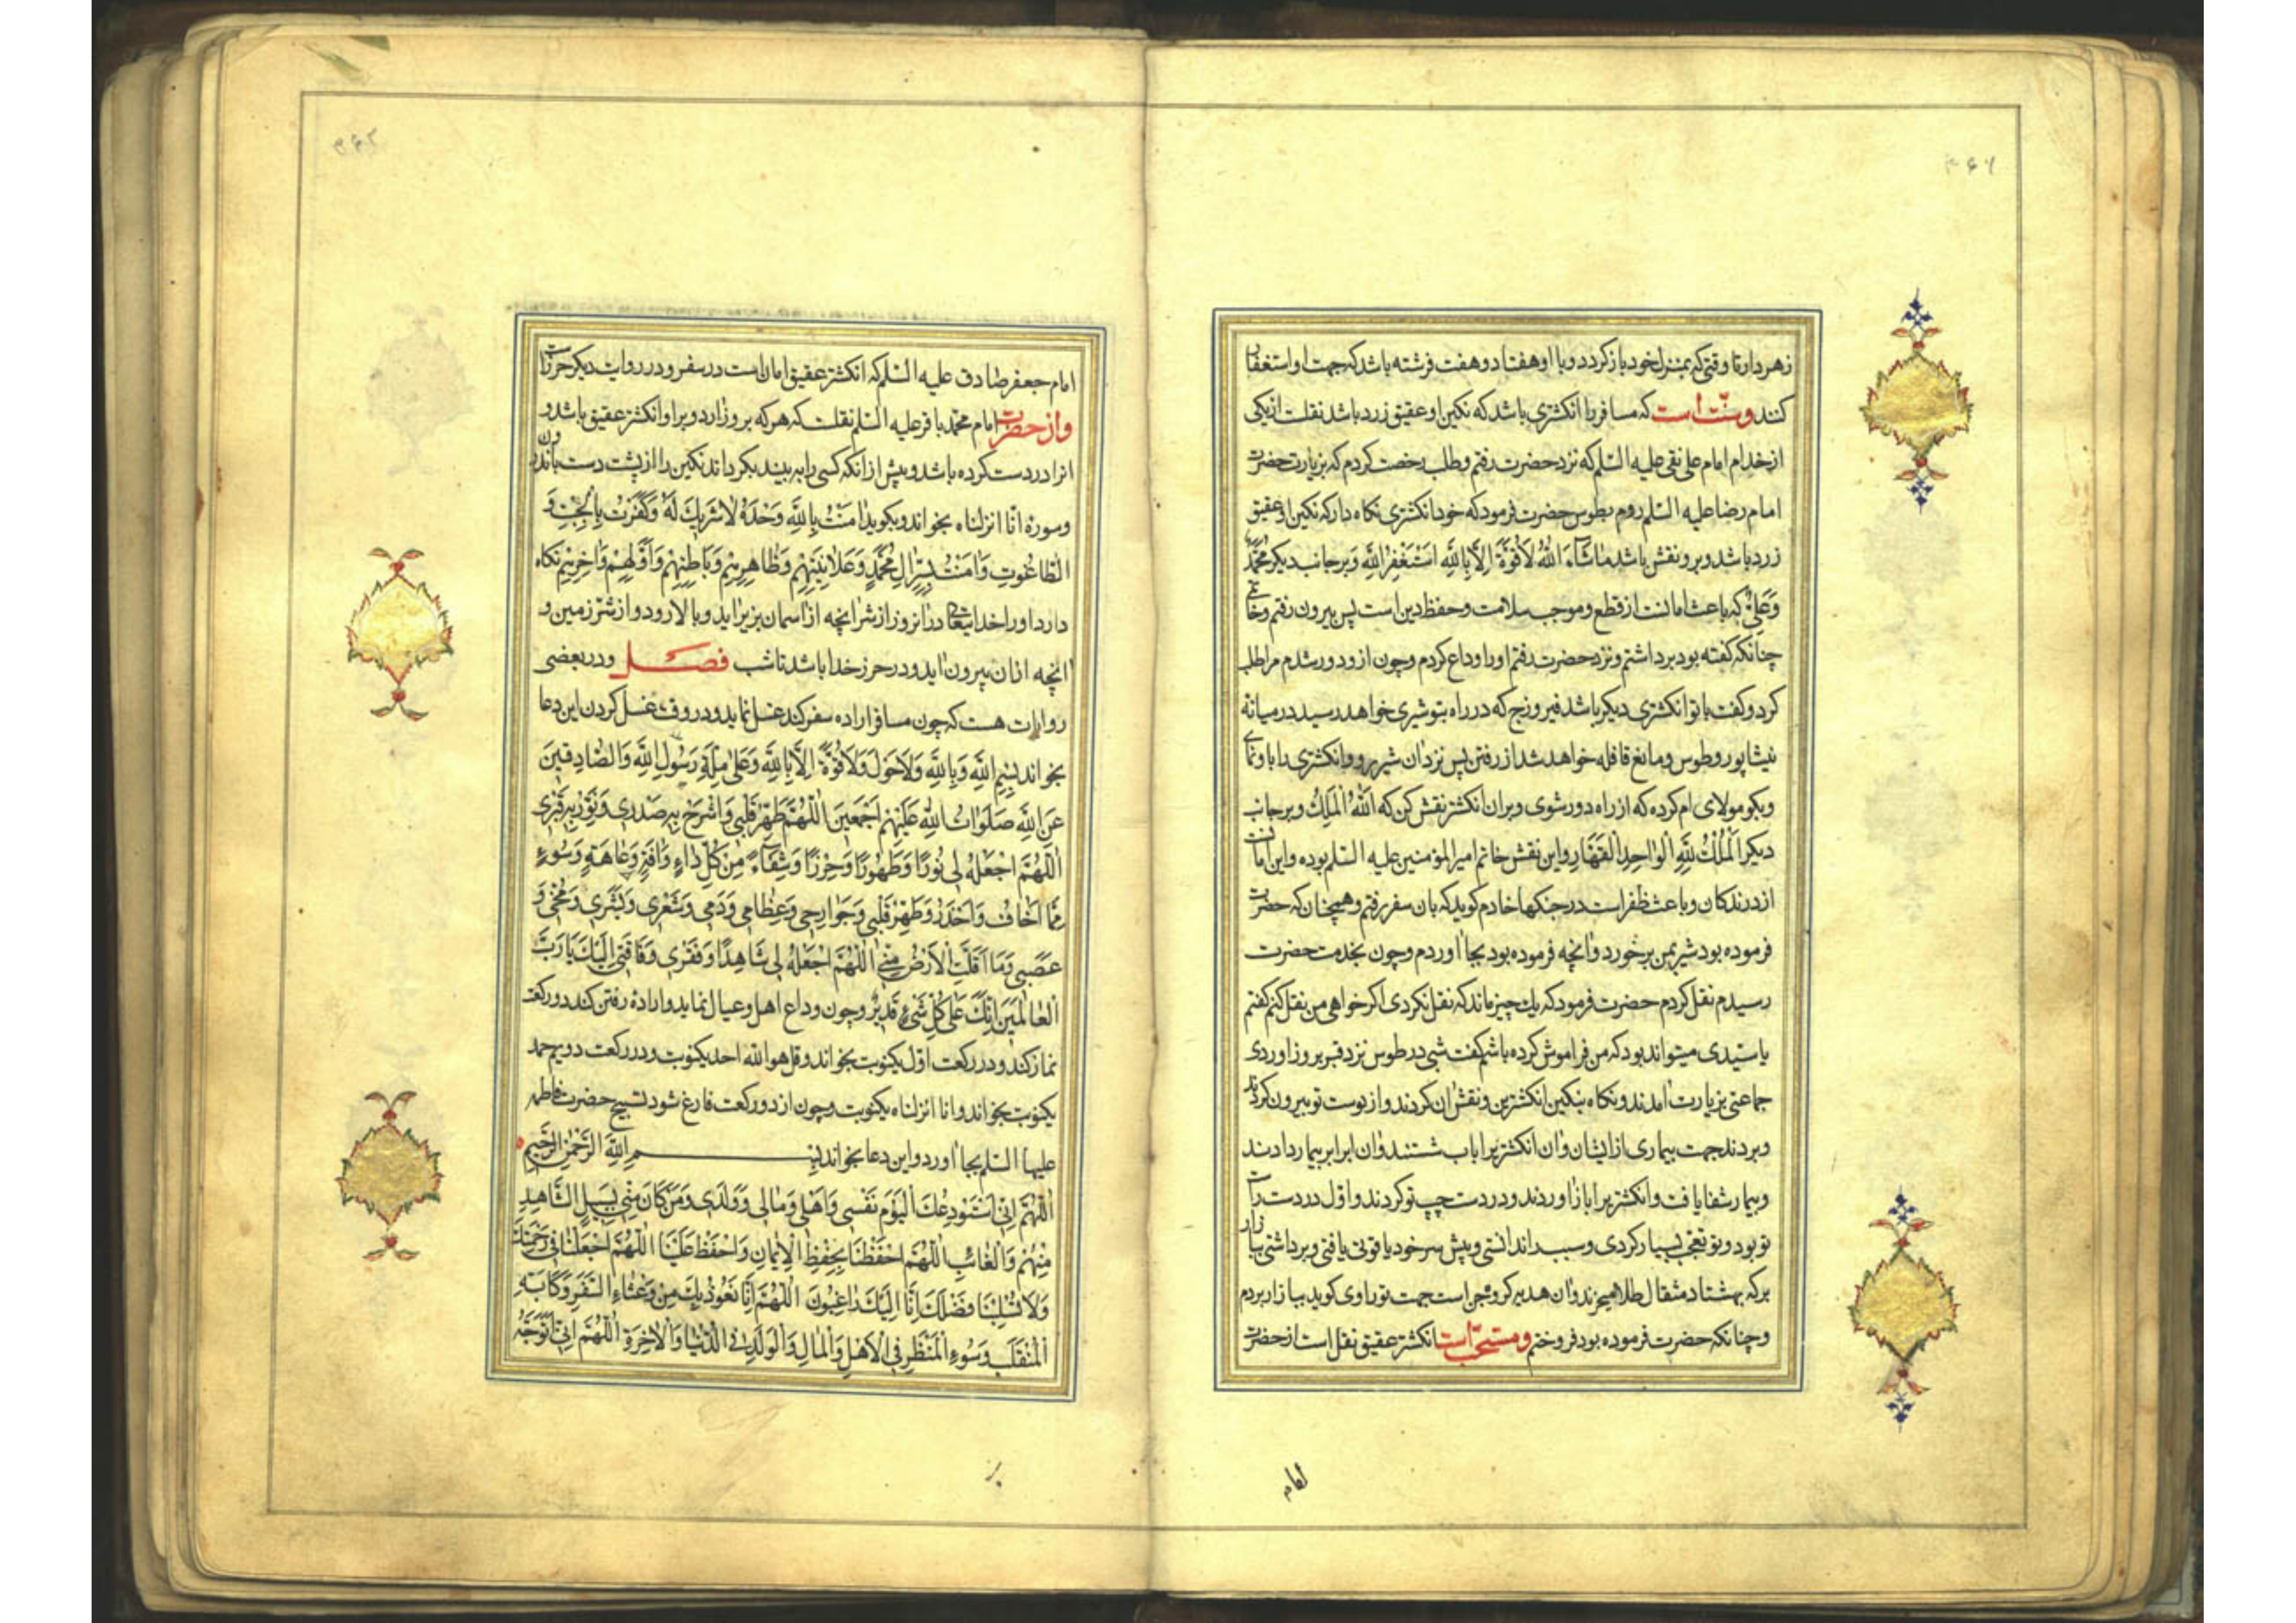 ۳۶۱
زهردار تا وقتی که بمنزل خود بازکردد و با او هفتاد و هفت فرشته باشد که جهت او استغفار
کنند و سنّت است که مسافر با انکشتری باشد که نکین او عقیق زرد باشد نقلست از یکی
از خدام امام علی نقی علیه السّلم که نزد حضرت رفتم و طلب رخصت کردم که بزیارت حضرت
امام رضا علیه السّلم روم بطوس حضرت فرمود که خود انکشتری نکاه دار که نکین او عقیق
زرد باشد و برو نقش باشد مَاشَآءَ اللّهُ لَا قُوَّةَ اِلَّا بِاللّهِ اَسْتَغْفِرُ اللّهَ وَ بر جانب دیکر مُحَمَّدٌ
وَعَلِیٌّ که باعث امانست از قطع و موجب سلامت و حفظ دین است پس بیرون رفتم و خاتمی
چنانکه کفته بود برداشتم و نزد حضرت رفتم او را وداع کردم و چون ازو دور شدم مرا طلب
کرد و کفت با تو انکشتری دیکر باشد فیروزج که در راه بتو شیری خواهد رسید در میانه
نیشاپور و طوس و مانع قافله خواهد شد از رفتن پس نزد ان شیر رو و انکشتری را با و نمای
و بکو مولای ام کرده که از راه دور شوی و بر ان انکشتر نقش کن که اَللّهُ الْمَلِكُ و بر جانب
دیکر اَلْمُلْكُ لِلّهِ الْوَاحِدِ الْقَهَّارِ و این نقش خاتم امیرالمؤمنین علیه السّلم بوده و این امانست
از درندکان و باعث ظفر است در جنکها خادم کوید که بان سفر رفتم و همچنان که حضرت
فرموده بود شیر بمن برخورد و انچه فرموده بود بجا اوردم و چون بخدمت حضرت
رسیدم نقل کردم حضرت فرمود که یك چیز ماند که نقل نکردی اکر خواهی من نقل کنم کفتم
یا سیّدی میتواند بود که من فراموش کرده باشم کفت شبی در طوس نزد قبر بروز اوردی
جماعتی بزیارت امدند و نکاه بنکین انکشترین و نقش ان کردند و از دست تو بیرون کردند
و بردند جهت بیماری از ایشان و ان انکشتر را باب شستند و ان اب را ببیمار دادند
و بیمار شفا یافت و انکشتر را باز اوردند و در دست چپ تو کردند و اول در دست راست
تو بود و تو تعجب بسیار کردی و سبب را ندانستی و پیش سر خود یاقوتی یافتی و برداشتی ببازار
بر که بهشتاد مثقال طلا میخرند و ان هدیه کروه جن است جهت تو راوی کوید ببازار بردم
و چنانکه حضرت فرموده بود فروختم و مستحبّ است انکشتر عقیق نقل است از حضرت
امام
۳۶۲
امام جعفر صادق علیه السّلم که انکشتر عقیق امان است در سفر و در روایت دیکر حرزا
و از حضرت امام محمّد باقر علیه السّلم نقلست که هر که بروز ارد و بر او انکشتر عقیق باشد و
انرا در دست کرده باشد و پیش از انکه کسی را به بیند بکرداند نکین را از پشت دست باندرون
و سوره انّا انزلناه بخواند و بکوید اٰمَنْتُ بِاللّهِ وَحْدَهُ لَا شَرِيكَ لَهُ وَكَفَرْتُ بِالْجِبْتِ وَ
الطَّاغُوتِ وَاٰمَنْتُ بِسِرِّ اٰلِ مُحَمَّدٍ وَعَلَانِيَتِهِمْ وَظَاهِرِهِمْ وَبَاطِنِهِمْ وَاَوَّلِهِمْ وَاٰخِرِهِمْ نکاه
دارد او را خدایتعالی در انروز از شرّ انچه از اسمان بزیر اید و بالا رود و از شرّ زمین و
انچه از ان بیرون اید و در حرز خدا باشد تا شب فصل و در بعضی
روایات هست که چون مسافر اراده سفر کند غسل نماید و در وقت غسل کردن این دعا
بخواند بِسْمِ اللّهِ وَبِاللّهِ وَلَا حَوْلَ وَلَا قُوَّةَ اِلَّا بِاللّهِ وَعَلٰى مِلَّةِ رَسُولِ اللّهِ وَالصَّادِقِينَ
عَنِ اللّهِ صَلَوَاتُ اللّهِ عَلَيْهِمْ اَجْمَعِينَ اَللّهُمَّ طَهِّرْ قَلْبِي وَاشْرَحْ بِهِ صَدْرِي وَنَوِّرْ بِهِ قَبْرِي
اَللّهُمَّ اجْعَلْهُ لِي نُورًا وَطَهُورًا وَحِرْزًا وَشِفَآءً مِنْ كُلِّ دَاءٍ وَاٰفَةٍ وَعَاهَةٍ وَسُوءٍ
مِمَّا اَخَافُ وَاَحْذَرُ وَطَهِّرْ قَلْبِي وَجَوَارِحِي وَعِظَامِي وَدَمِي وَشَعْرِي وَبَشَرِي وَمُخِّي وَ
عَصَبِي وَمَا اَقَلَّتِ الْاَرْضُ مِنِّي اَللّهُمَّ اجْعَلْهُ لِي شَاهِدًا وَفَقْرِي وَفَاقَتِي اِلَيْكَ يَا رَبَّ
الْعَالَمِينَ اِنَّكَ عَلٰى كُلِّ شَيْءٍ قَدِيرٌ و چون وداع اهل و عیال نماید و اراده رفتن کند دو رکعت
نماز کند و در رکعت اول یکنوبت بخواند و قل هو اللّه احد یکنوبت و در رکعت دویم حمد
یکنوبت بخواند و انا انزلناه یکنوبت و چون از دو رکعت فارغ شود تسبیح حضرت فاطمه
علیها السّلم بجا اورد و این دعا بخواند بِسْمِ اللّهِ الرَّحْمٰنِ الرَّحِيمِ
اَللّهُمَّ اِنِّي اَسْتَوْدِعُكَ الْيَوْمَ نَفْسِي وَاَهْلِي وَمَالِي وَوَلَدِي وَمَنْ كَانَ مِنِّي بِسَبِيلٍ الشَّاهِدِ
مِنْهُمْ وَالْغَائِبِ اَللّهُمَّ احْفَظْنَا بِحِفْظِ الْاِيمَانِ وَاحْفَظْ عَلَيْنَا اَللّهُمَّ اجْعَلْنَا فِي رَحْمَتِكَ
وَلَا تَسْلُبْنَا فَضْلَكَ اِنَّا اِلَيْكَ رَاغِبُونَ اَللّهُمَّ اِنَّا نَعُوذُ بِكَ مِنْ وَعْثَاءِ السَّفَرِ وَكَاٰبَةِ
الْمُنْقَلَبِ وَسُوءِ الْمَنْظَرِ فِي الْاَهْلِ وَالْمَالِ وَالْوَلَدِ فِي الدُّنْيَا وَالْاٰخِرَةِ اَللّهُمَّ اِنِّي اَتَوَجَّهُ